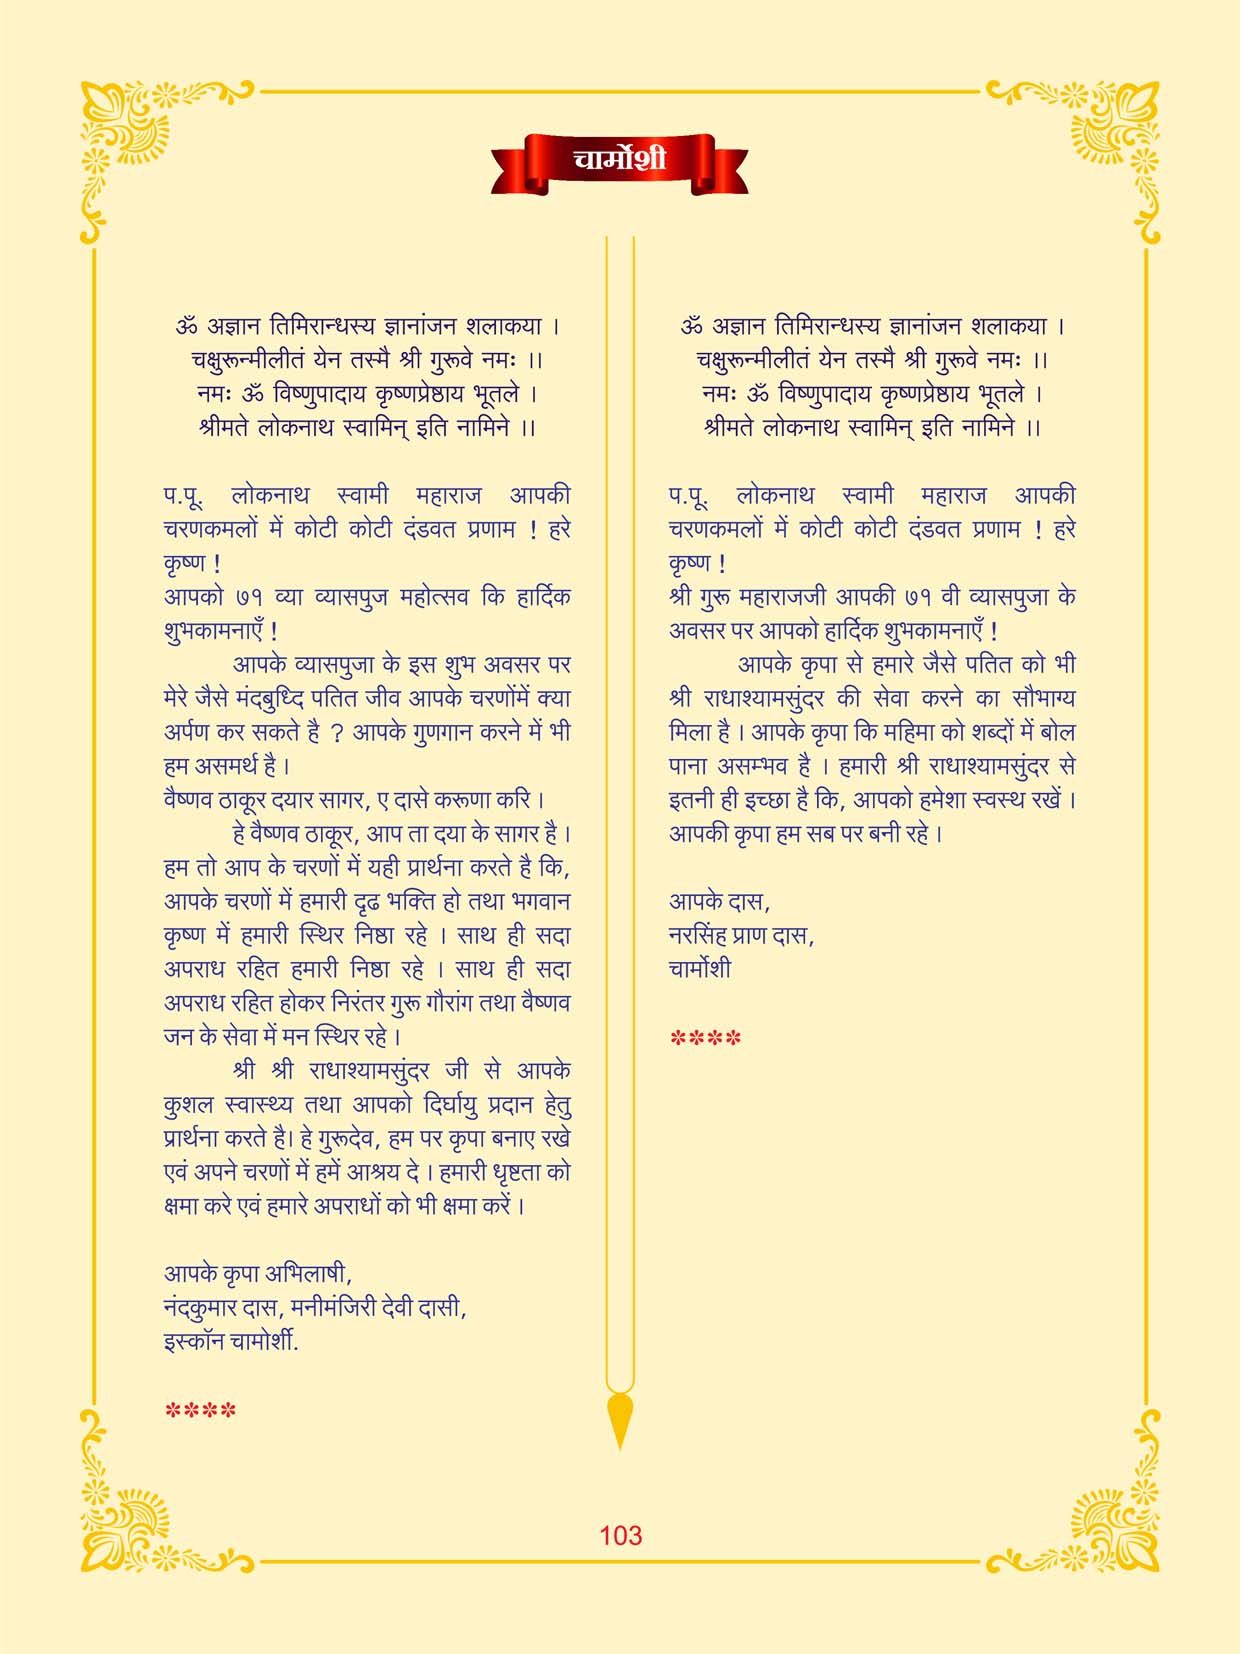 चार्मोशी
ॐ अज्ञान तिमिरान्धस्य ज्ञानांजन शलाकया ।
चक्षुरून्मीलीतं येन तस्मै श्री गुरूवे नमः ।।
नमः ॐ विष्णुपादाय कृष्णप्रेष्ठाय भूतले ।
श्रीमते लोकनाथ स्वामिन् इति नामिने ।।
प.पू. लोकनाथ स्वामी महाराज आपकी
चरणकमलों में कोटी कोटी दंडवत प्रणाम ! हरे
कृष्ण !
आपको ७१ व्या व्यासपुज महोत्सव कि हार्दिक
शुभकामनाएँ !
आपके व्यासपुजा के इस शुभ अवसर पर
मेरे जैसे मंदबुध्दि पतित जीव आपके चरणोंमें क्या
अर्पण कर सकते है ? आपके गुणगान करने में भी
हम असमर्थ है ।
वैष्णव ठाकूर दयार सागर, ए दासे करूणा करि ।
हे वैष्णव ठाकूर, आप ता दया के सागर है ।
हम तो आप के चरणों में यही प्रार्थना करते है कि,
आपके चरणों में हमारी दृढ भक्ति हो तथा भगवान
कृष्ण में हमारी स्थिर निष्ठा रहे । साथ ही सदा
अपराध रहित हमारी निष्ठा रहे । साथ ही सदा
अपराध रहित होकर निरंतर गुरू गौरांग तथा वैष्णव
जन के सेवा में मन स्थिर रहे ।
श्री श्री राधाश्यामसुंदर जी से आपके
कुशल स्वास्थ्य तथा आपको दिर्घायु प्रदान हेतु
प्रार्थना करते है। हे गुरूदेव, हम पर कृपा बनाए रखे
एवं अपने चरणों में हमें आश्रय दे । हमारी धृष्टता को
क्षमा करे एवं हमारे अपराधों को भी क्षमा करें ।
आपके कृपा अभिलाषी,
नंदकुमार दास, मनीमंजिरी देवी दासी,
इस्कॉन चामोर्शी.
****
ॐ अज्ञान तिमिरान्धस्य ज्ञानांजन शलाकया ।
चक्षुरून्मीलीतं येन तस्मै श्री गुरूवे नमः ।।
नमः ॐ विष्णुपादाय कृष्णप्रेष्ठाय भूतले ।
श्रीमते लोकनाथ स्वामिन् इति नामिने ।।
प.पू. लोकनाथ स्वामी महाराज आपकी
चरणकमलों में कोटी कोटी दंडवत प्रणाम ! हरे
कृष्ण !
श्री गुरू महाराजजी आपकी ७१ वी व्यासपुजा के
अवसर पर आपको हार्दिक शुभकामनाएँ !
आपके कृपा से हमारे जैसे पतित को भी
श्री राधाश्यामसुंदर की सेवा करने का सौभाग्य
मिला है । आपके कृपा कि महिमा को शब्दों में बोल
पाना असम्भव है । हमारी श्री राधाश्यामसुंदर से
इतनी ही इच्छा है कि, आपको हमेशा स्वस्थ रखें ।
आपकी कृपा हम सब पर बनी रहे ।
आपके दास,
नरसिंह प्राण दास,
चार्मोशी
****
103